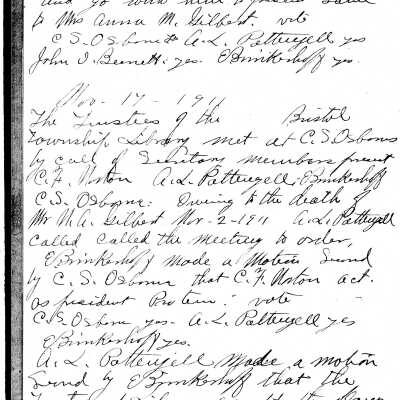 and go with him
to Mrs Anna M. Gilbert. vote
C. S. Osborne A. L. Pattengell yes
John I Bennett: yes. E Brinkerhoff yes.
Nov - 17 - 1911
The Trustees of the Bristol
Township Library met at C. S. Osborns
by call of Secretary members present
C. F. Norton A. L. Pattengell; E Brinkerhoff
C. S. Osborne: Owing to the death of
Mr M. A. Gilbert Nov- 2-1911 A. L. Pattengell
Called Called the meeting to order,
E Brinkerhoff made a Motion Second
by C. S. Osborne that C. F. Norton act.
as president Protem: vote
C. S. Osborne yes- A. L. Pattengell yes
E Brinkerhoff yes.
A. L. Pattengell Made a motion
Second by E Brinkerhoff that the